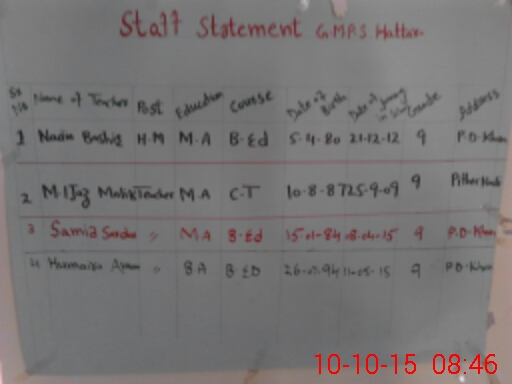 Staff Statement G.M.P.S Hattar
Sr No Name of Teacher Post Education Course Date of Birth Date of Joining in Grade Address
1 Nadia H.M M.A B.Ed 5-4-80 21-12-12 9 P.D.Khan
2 M.Ijaz Malik Teacher M.A C.T 10-8-87 25-9-09 9
3 Samia " MA B.Ed 15-01-84 15 9 P.D.Khan
4 " BA B.ED 26- 94 11-05-15 9 P.D.Khan
10-10-15 08:46